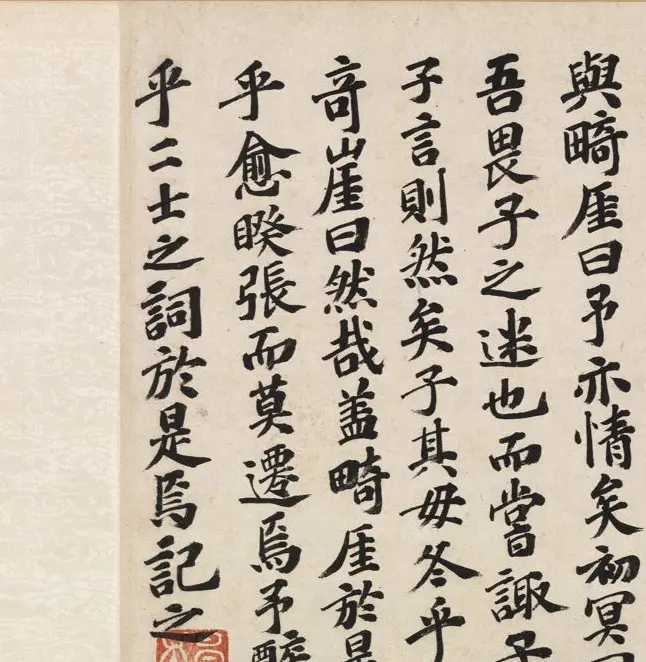 與畸厓曰予亦情矣初冥
吾畏子之迷也而嘗諏子
子言則然矣子其毋咎乎
奇崖曰然哉蓋畸厓於是
乎愈睽張而莫遷焉予醉
乎二士之詞於是焉記之